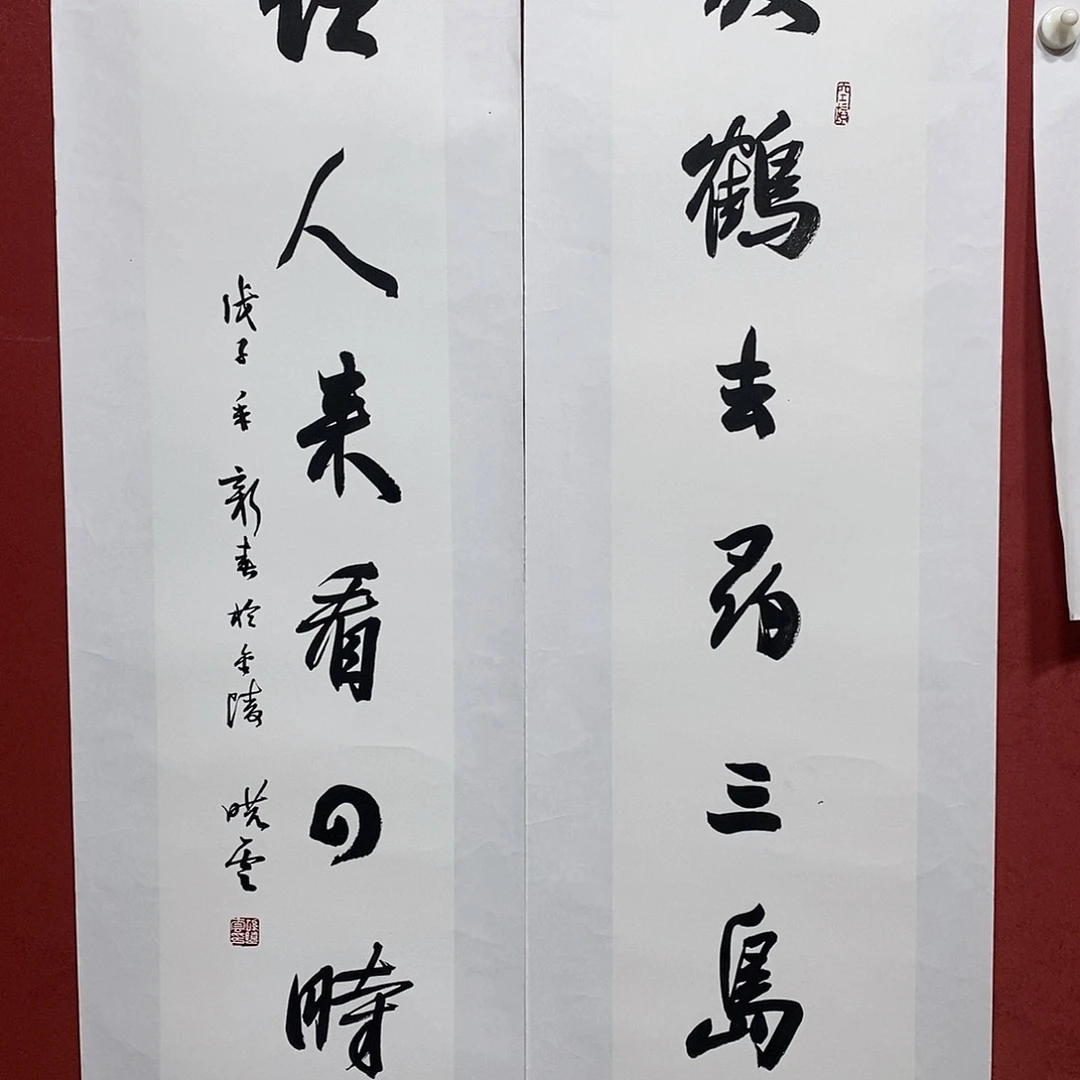 鶴去尋三島
人来看四時
戊子年新春於金陵 晓雲